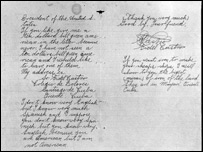 President of the United S.
If you like, give me a
ten dollars bill green american
in the letter, because
never, I have not seen a
ten dollars bill green
american and I would like
to have one of them.
My address is:
Fidel Castro
Colegio de Dolores
Santiago de Cuba
Oriente Cuba
I don't know very English
but I know very much
Spanish and I suppose
you don't know very Spanish
but you know very
English because you
are American but I am
not American
Thank you very much
Good by. Your friend,
Fidel Castro
If you want iron to make
your ships I will
show to you the bigest
of iron of the land
They are in Mayari Oriente
Cuba